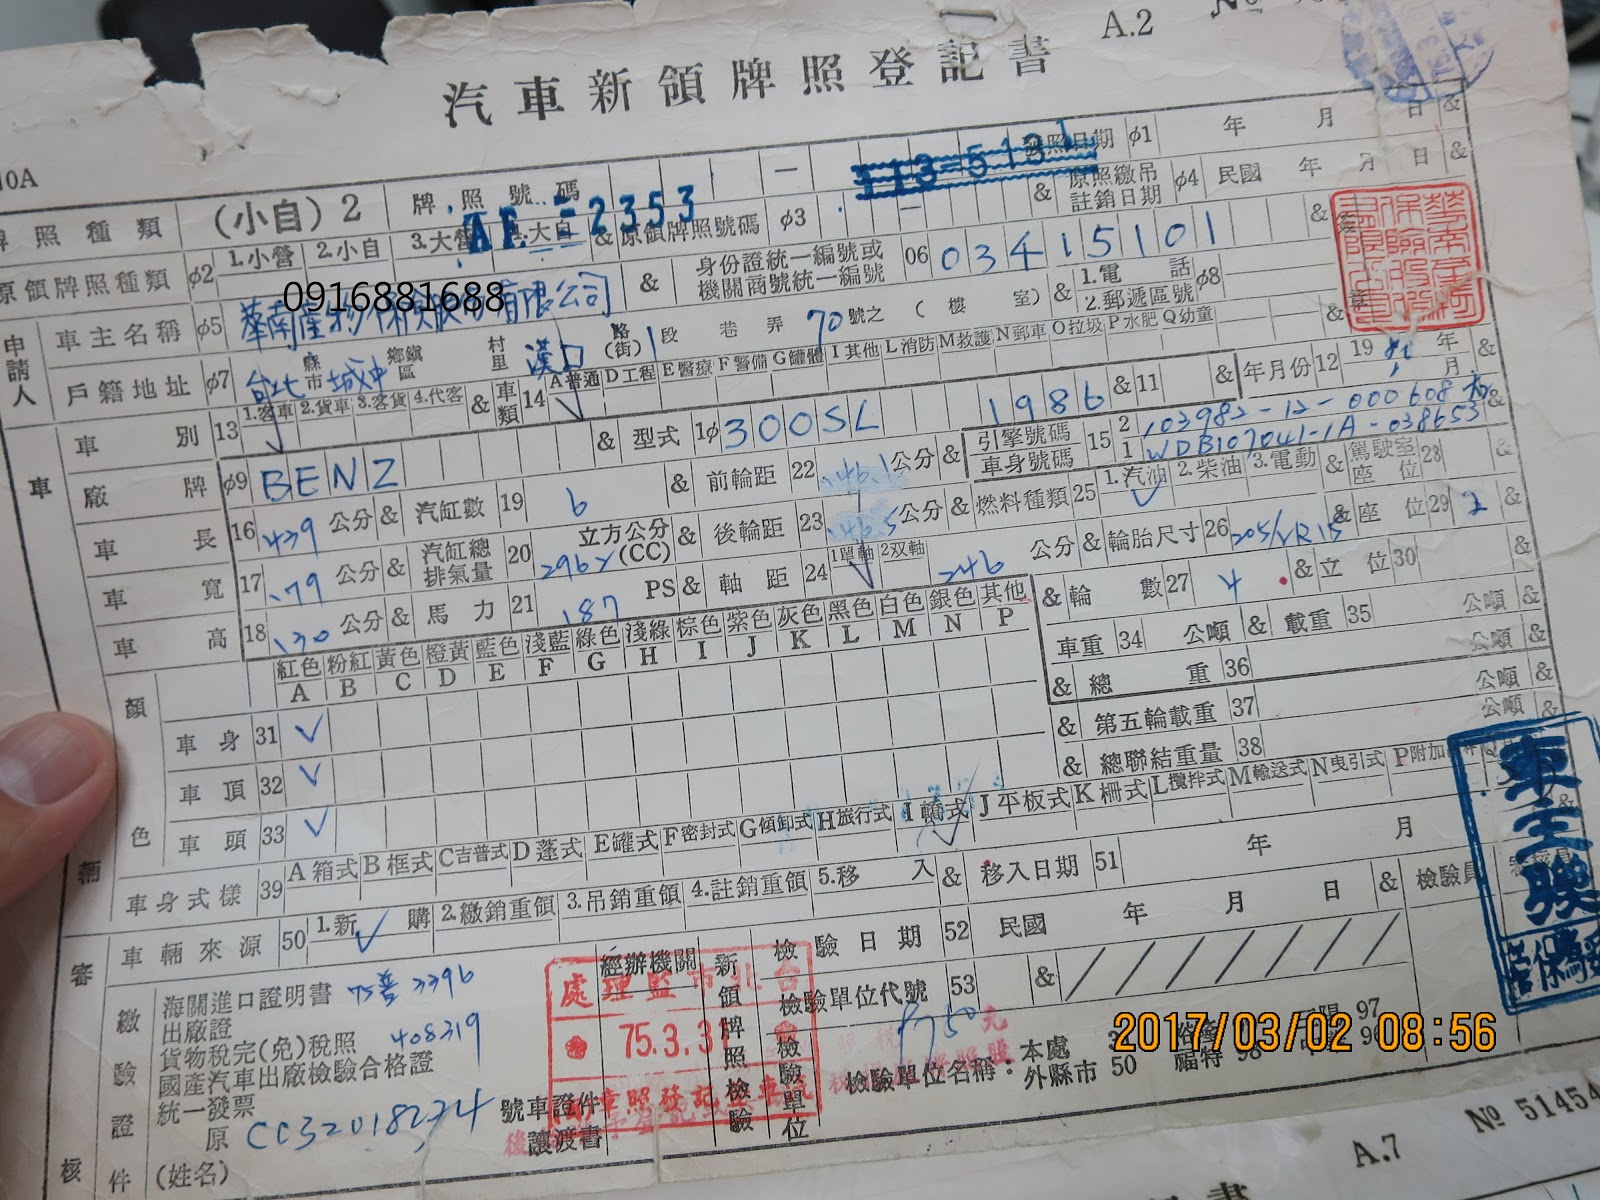 A.2 No
汽車新領牌照登記書
10A
牌照種類 (小自) 2 牌照號碼 AE-2353 發照日期 φ1 年 月 日 &
原領牌照種類 φ2 1.小營 2.小自 3.大營 4.大自 & 原領牌照號碼 φ3 & 原照繳吊註銷日期 φ4 民國 年 月 日 &
申請人 車主名稱 φ5 華南產物保險股份有限公司 & 身份證統一編號或機關商號統一編號 06 03415101 &
0916881688
戶籍地址 φ7 台北 縣市 城中 鄉鎮區 村里 漢口 路(街) 1 段 巷 弄 70 號之 (樓 室) & 1.電話 2.郵遞區號 φ8 &
車別 13 1.客車 2.貨車 3.客貨 4.代客 & 車類 14 A普通 D工程 E醫療 F警備 G罐體 I其他 L消防 M救護 N郵車 O垃圾 P水肥 Q幼童
廠牌 φ9 BENZ & 型式 1φ 300SL 1986 & 11 & 年月份 12 19 年 月 &
車長 16 439 公分 & 汽缸數 19 6 & 前輪距 22 146.1 公分 & 引擎號碼 車身號碼 15 2 103982-12-000608 1 WDB107041-1A-038653 &
車寬 17 179 公分 & 汽缸總排氣量 20 2962 立方公分(CC) & 後輪距 23 146.5 公分 & 燃料種類 25 1.汽油 2.柴油 3.電動 & 駕駛室座位 28 &
車高 18 130 公分 & 馬力 21 187 PS & 軸距 24 1單軸 2双軸 246 公分 & 輪胎尺寸 26 205/VR15 & 座位 29 2 &
顏色 紅色 A 粉紅 B 黃色 C 橙黃 D 藍色 E 淺藍 F 綠色 G 淺綠 H 棕色 I 紫色 J 灰色 K 黑色 L 白色 M 銀色 N 其他 P
& 輪數 27 4 & 立位 30 &
車重 34 公噸 & 載重 35 公噸 &
& 總重 36 公噸 &
車身 31 & 第五輪載重 37 公噸 &
車頂 32 & 總聯結重量 38 公噸 &
車頭 33
車身式樣 39 A箱式 B框式 C吉普式 D蓬式 E罐式 F密封式 G傾卸式 H旅行式 I轎式 J平板式 K柵式 L攪拌式 M輸送式 N曳引式 P附加
車輛來源 50 1.新購 2.繳銷重領 3.吊銷重領 4.註銷重領 5.移入 & 移入日期 51 年 月
審核 繳驗證件 海關進口證明書 75普3396
出廠證
貨物稅完(免)稅照 408319
國產汽車出廠檢驗合格證
統一發票
原 CC32018274 號車證件
讓渡書
(姓名)
經辦機關
台北市監理處
75.3.3
新領牌照檢驗
檢驗單位
檢驗日期 52 民國 年 月 日 & 檢驗員
檢驗單位代號 53 &
檢驗單位名稱：本處
外縣市 50 福特 98
97
車輛
華南產物保險股份有限公司
2017/03/02 08:56
A.7 No 51454